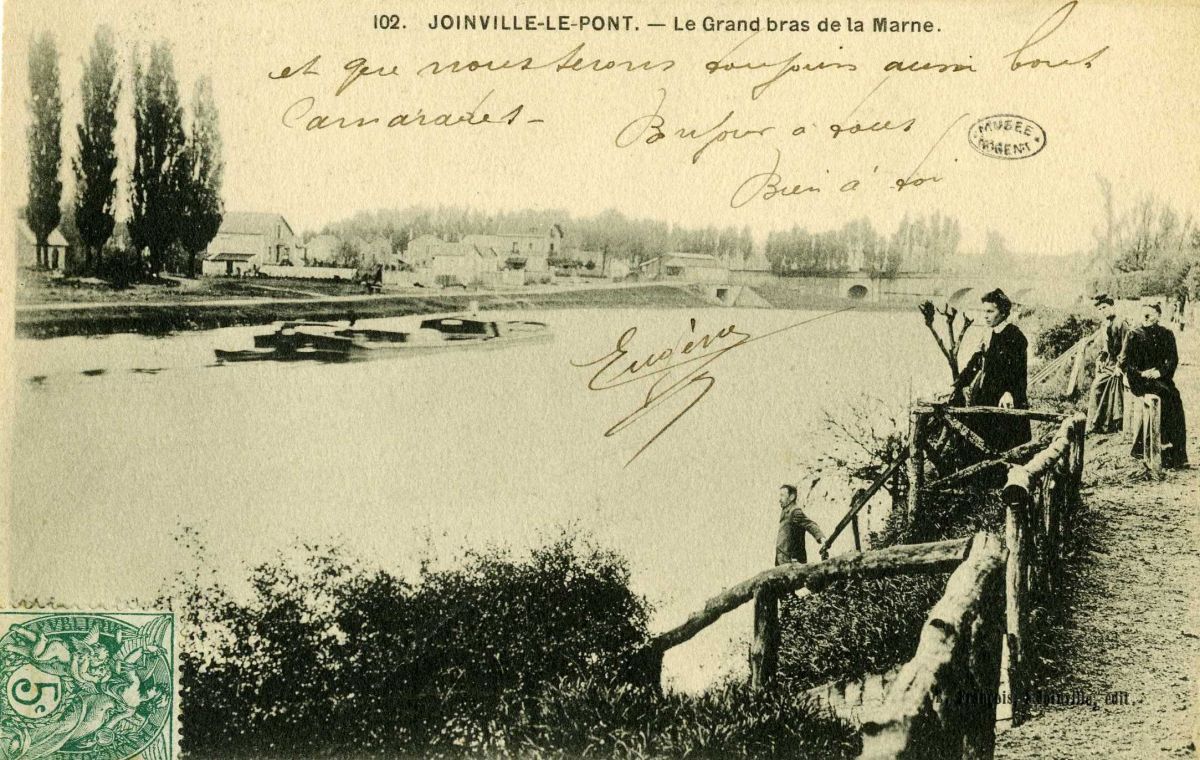 102. JOINVILLE-LE-PONT. — Le Grand bras de la Marne.
et que nous serons toujours aussi bons
Camarades -
Bonjour à tous
Bien à toi
MUSÉE
NOGENT
Eugène
5c
François, Joinville, édit.